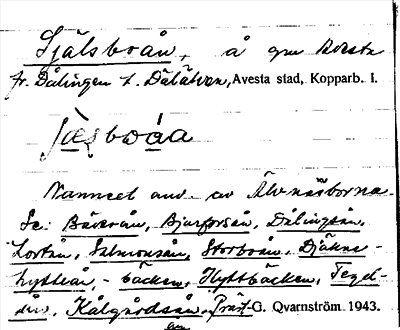 Själsboån, å gm Avesta
fr. Dålingen t. Dalälven, Avesta stad, Kopparb. l.
jæsboåa
Namnet anv. av Älvnäsborna.
Se: Bäverån, Bjurforsån, Dålingsån,
Lortån, Salmonsån, Storboån, Djäkne-
hytteån, - bäcken, Hyttbäcken, Tegel-
ån, Kålgårdsån, Präst- G. Qvarnström 1943.
ån